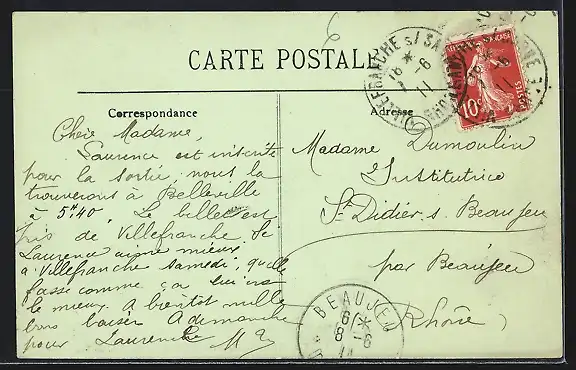 CARTE POSTALE
Correspondance
Chère Madame,
Laurence est inscrite
pour la sortie, nous la
trouverons à Belleville
à 5H40. Le billet est
pris de Villefranche. Si
Laurence aime mieux
à Villefranche samedi, qu'elle
fasse comme ça lui ira
le mieux. A bientôt mille
bons baisers A dimanche
pour Laurence
Adresse
Madame Dumoulin
Institutrice
St Didier s. Beaujeu
par Beaujeu
Rhône
VILLEFRANCHE s/ SA
RHONE
16 *
6
11
10c
POSTES
BEAUJEU
6 *
8 6
11